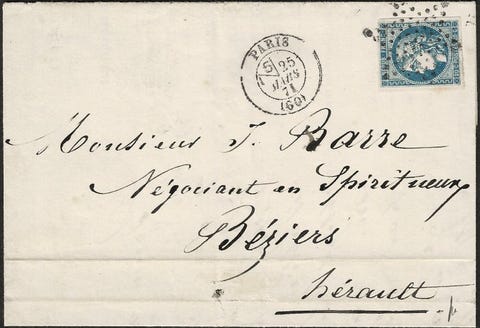 PARIS
5
25
MARS
71
(60)
Monsieur J. Barre
Négociant en Spiritueux
Béziers
hérault